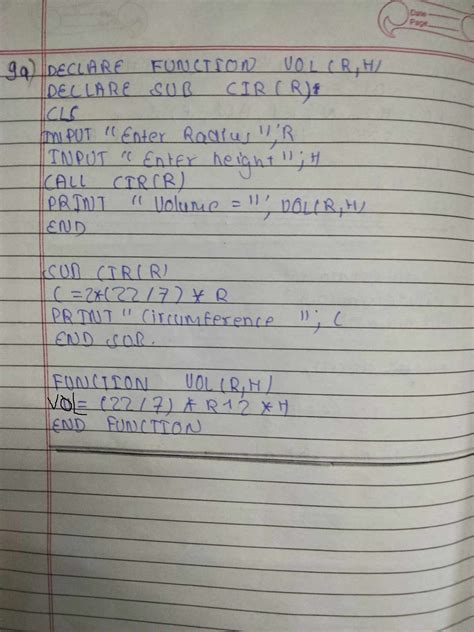 Date
Page
9a) DECLARE FUNCTION VOL(R,H)
DECLARE SUB CIR(R)
CLS
INPUT "Enter Radius"; R
INPUT "Enter height"; H
CALL CIR(R)
PRINT "Volume = "; VOL(R,H)
END
SUB CIR(R)
C = 2*(22/7) * R
PRINT "Circumference "; C
END SUB.
FUNCTION VOL(R,H)
VOL= (22/7) * R^2 * H
END FUNCTION